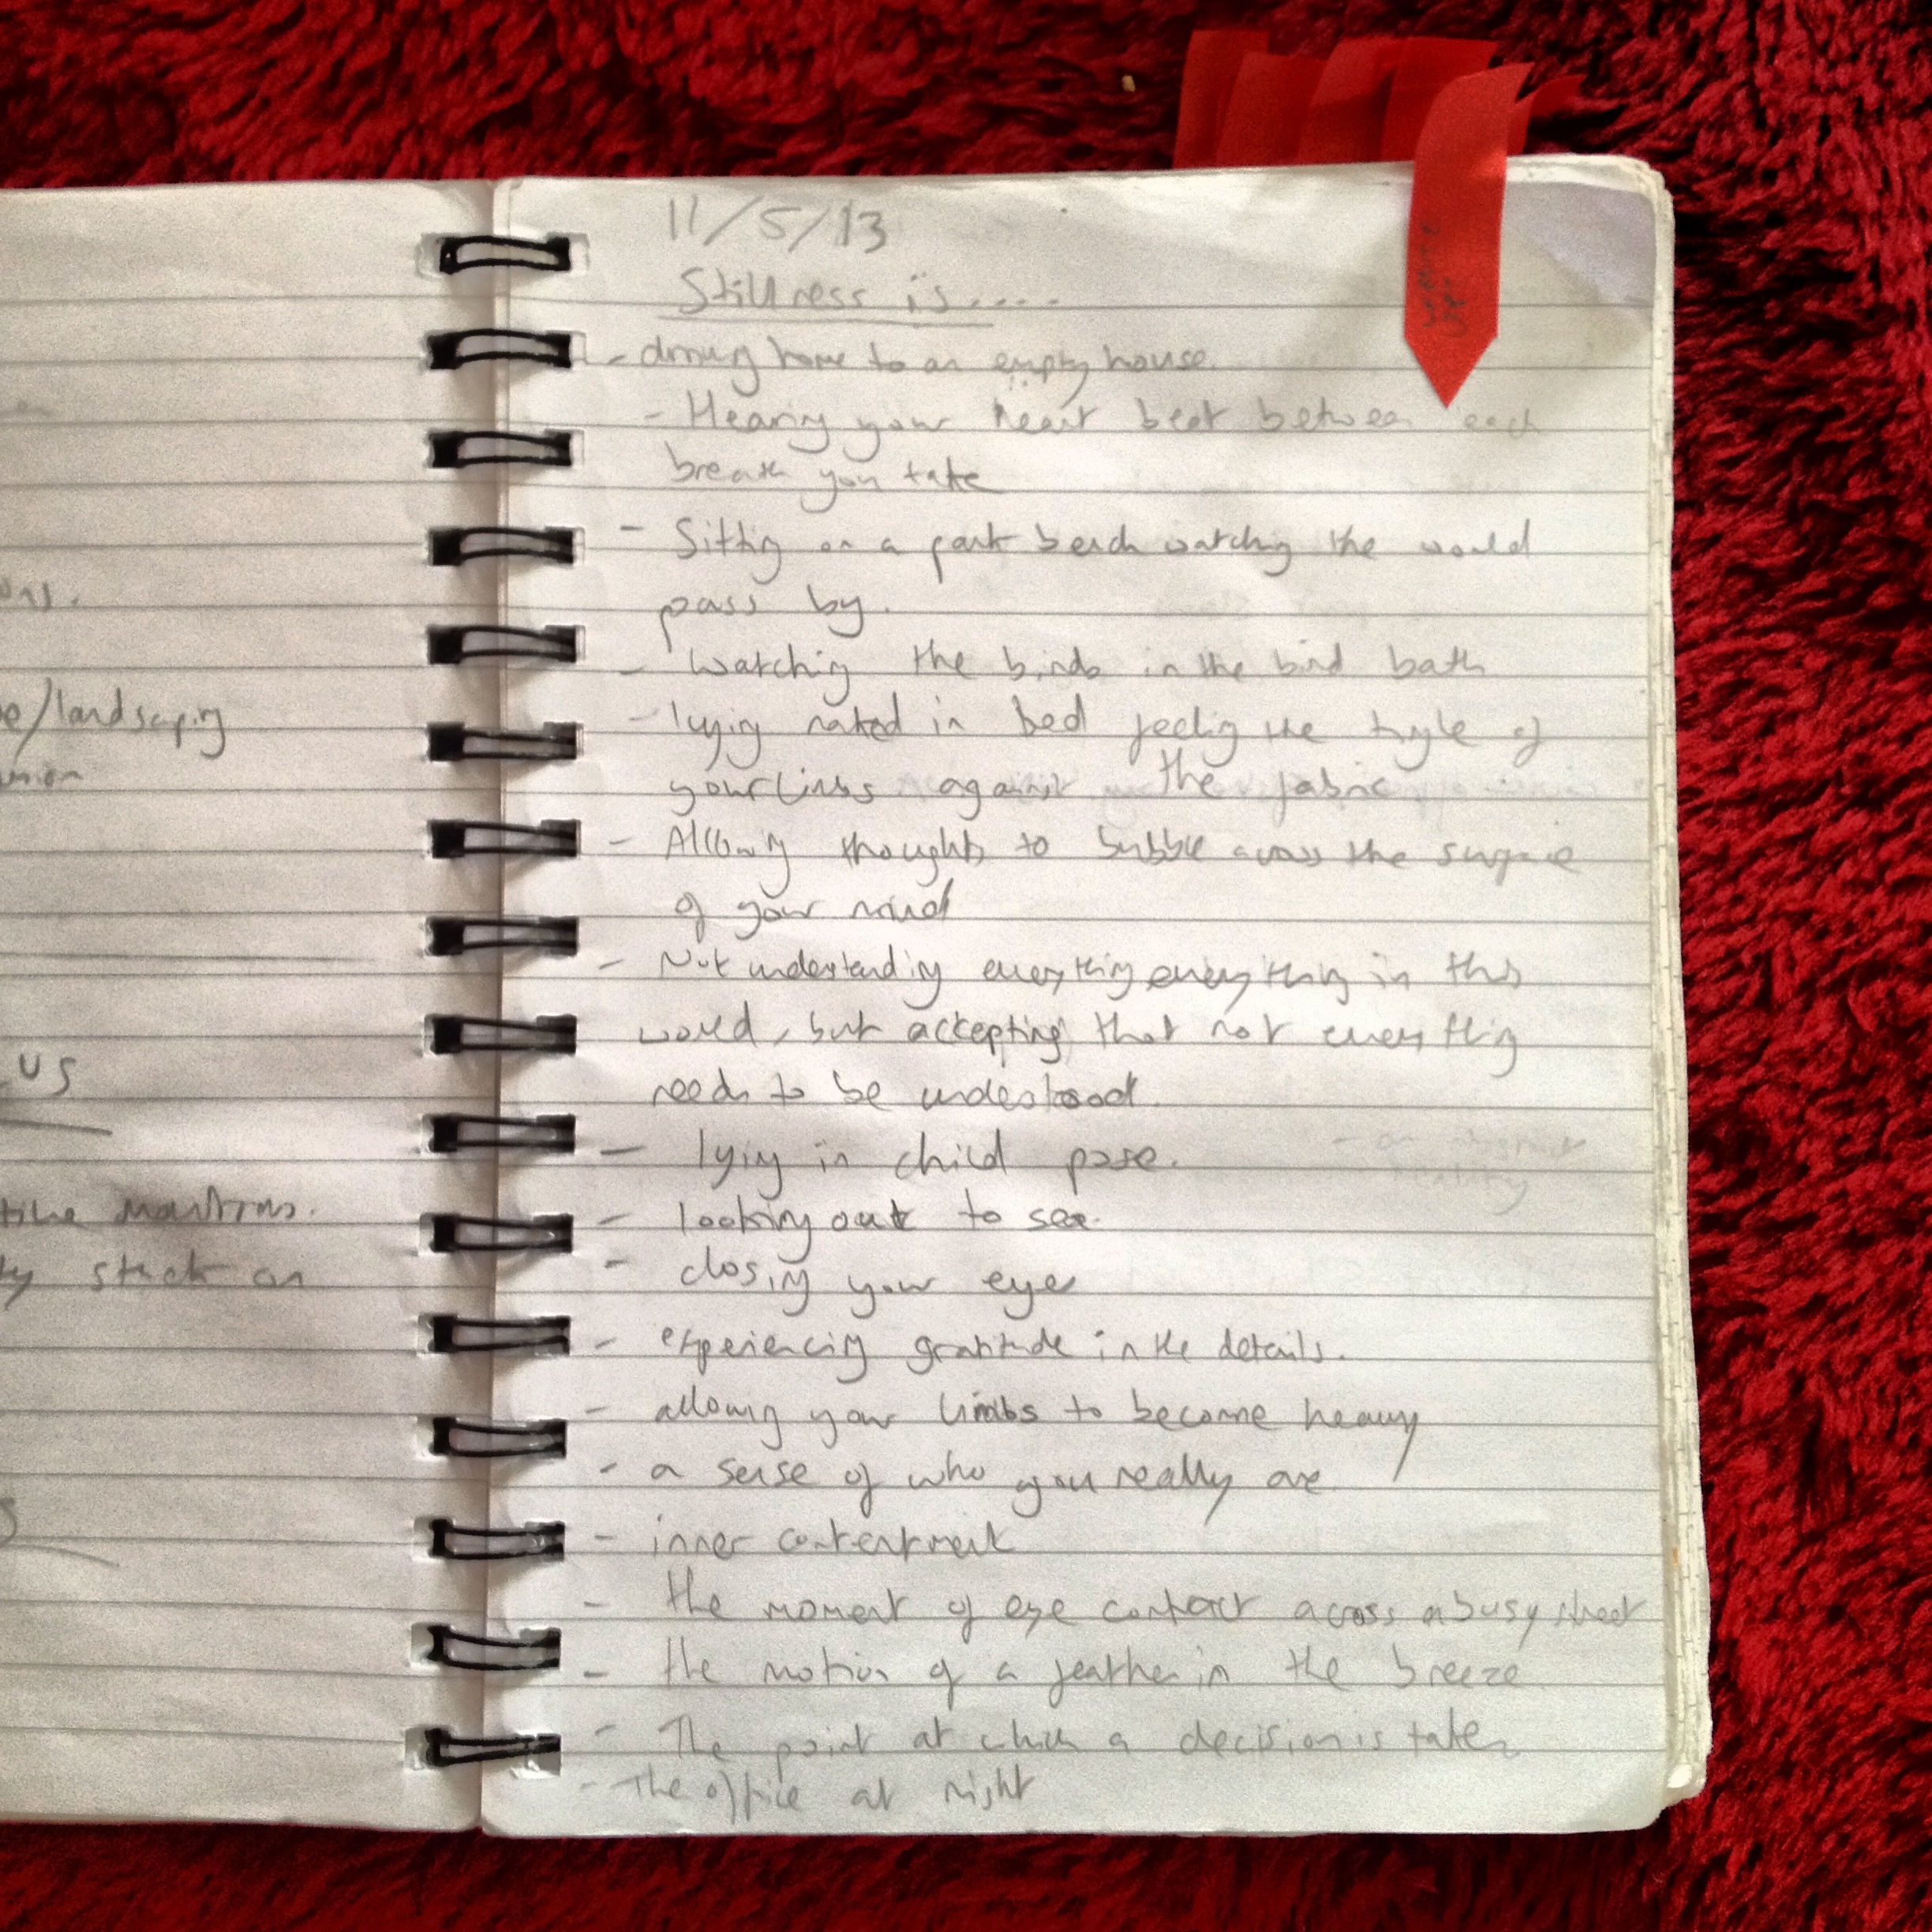 ons.
e/landscaping
us
time mantras.
ly stuck on
11/5/13
Stillness is.....
- driving home to an empty house.
- Hearing your heart beat between each
breath you take
- Sitting on a park bench watching the world
pass by.
- Watching the birds in the bird bath
- lying naked in bed feeling the tingle of
your limbs against the fabric
- Allowing thoughts to bubble across the surface
of your mind
- Not understanding everything everything in this
world, but accepting that not everything
needs to be understood.
- lying in child pose.
- looking out to sea.
- closing your eyes
- experiencing gratitude in the details.
- allowing your limbs to become heavy
- a sense of who you really are
- inner contentment
- the moment of eye contact across a busy street
- the motion of a feather in the breeze
- The point at which a decision is taken
- The office at night